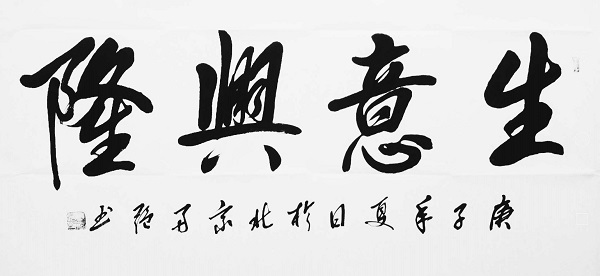 生意興隆
庚子年夏日於北京书